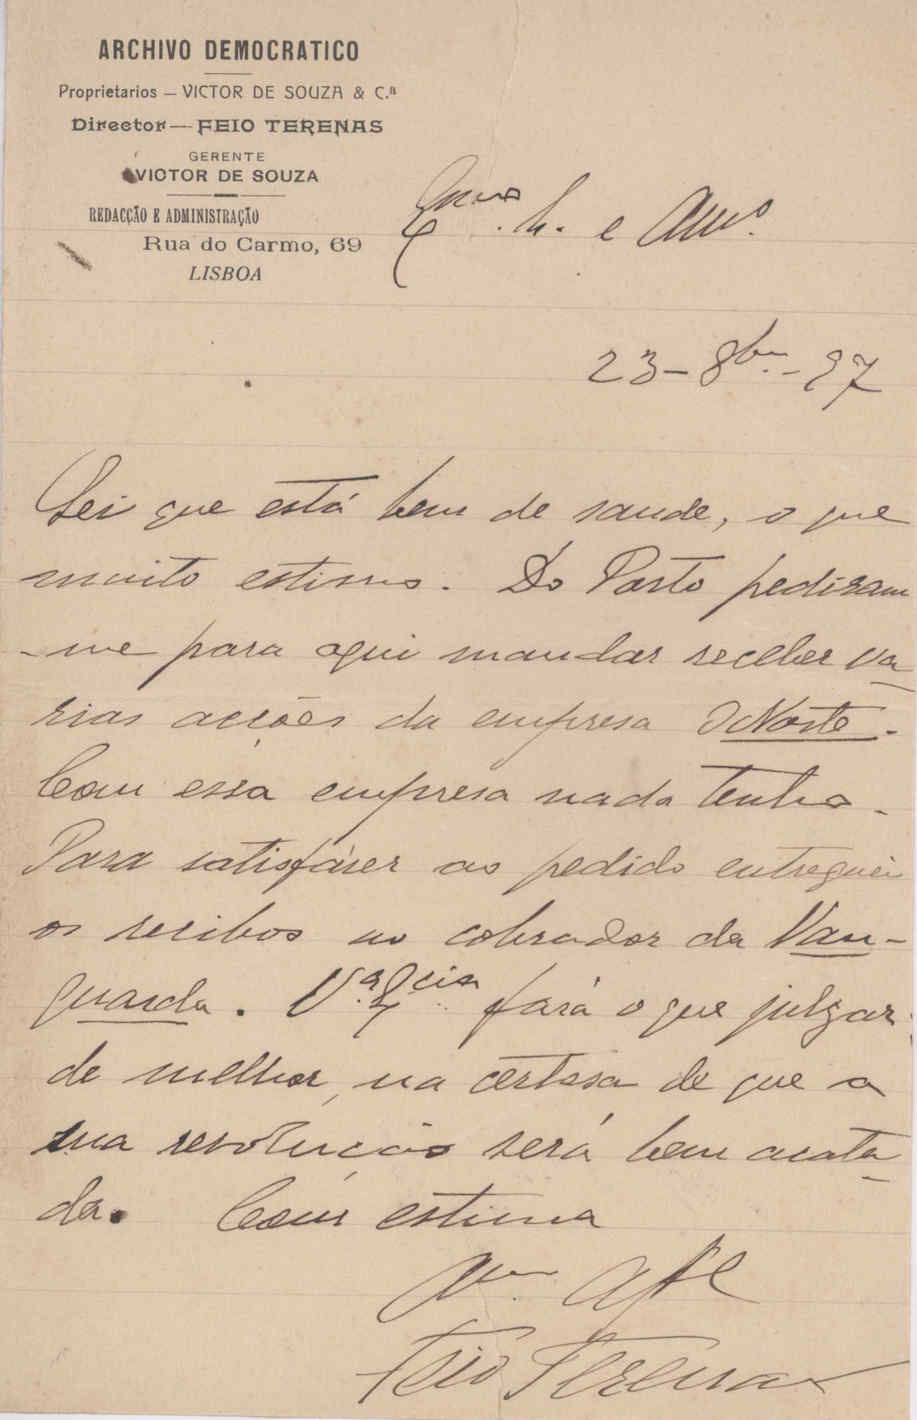 ARCHIVO DEMOCRATICO
Proprietarios — VICTOR DE SOUZA & C.ª
Director — FEIO TERENAS
GERENTE
VICTOR DE SOUZA
REDACÇÃO E ADMINISTRAÇÃO
Rua do Carmo, 69
LISBOA
Exmo. Sr. e Amo.
23-8bro.-97
Sei que está bem de saude, o que
muito estimo. Do Porto pediram
-me para aqui mandar receber va-
rias acções da empresa O Norte.
Com essa empresa nada tenho.
Para satisfazer ao pedido entreguei
os recibos ao cobrador da Van-
guarda. V.ª Ex.cia fará o que julgar
de melhor, na certesa de que a
sua resolução será bem acata-
da. Com estima
Feio Terenas